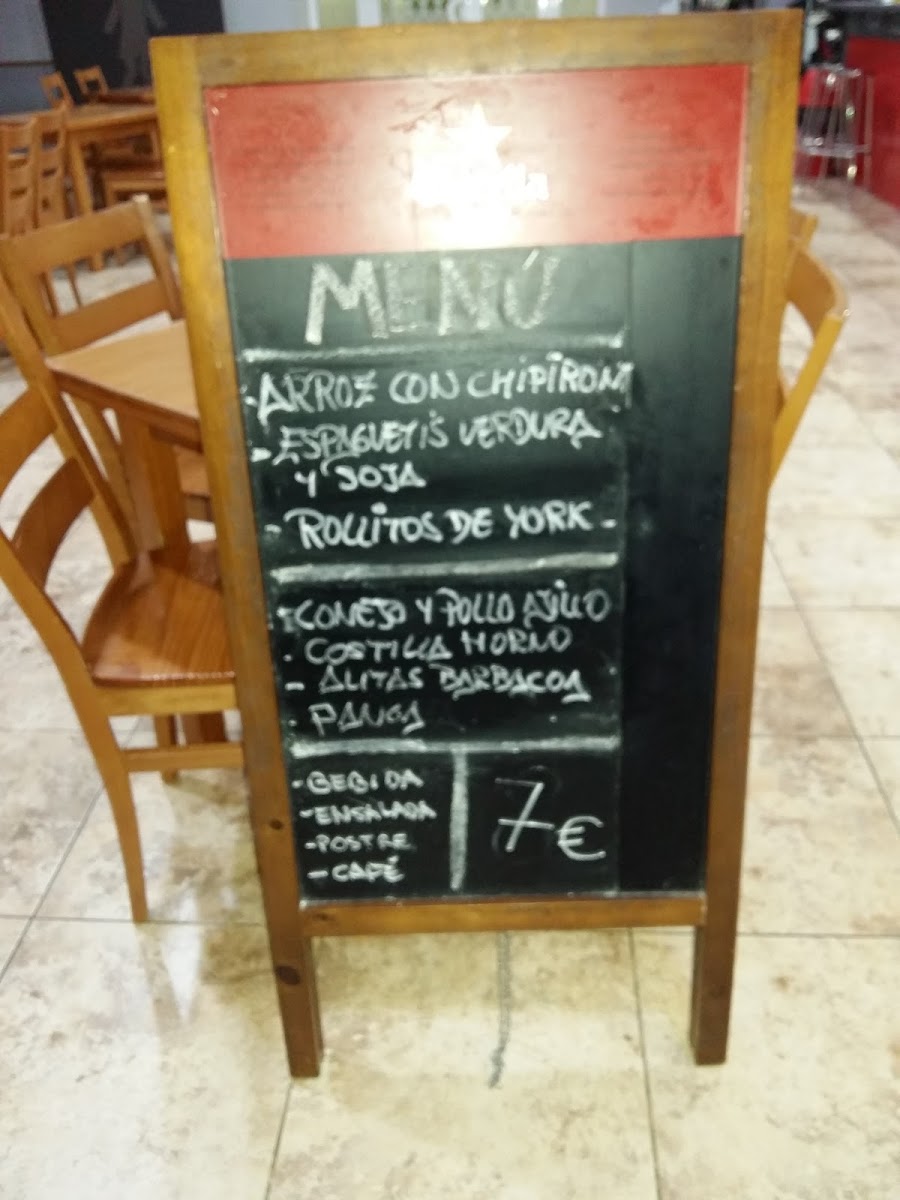 MENÚ
-ARROZ CON CHIPIRON
-ESPAGUETIS VERDURA
Y SOJA
- ROLLITOS DE YORK -
-CONEJO Y POLLO AJILLO
- COSTILLA HORNO
- ALITAS BARBACOA
- PANGA
-BEBIDA
-ENSALADA
-POSTRE
-CAFÉ
7€